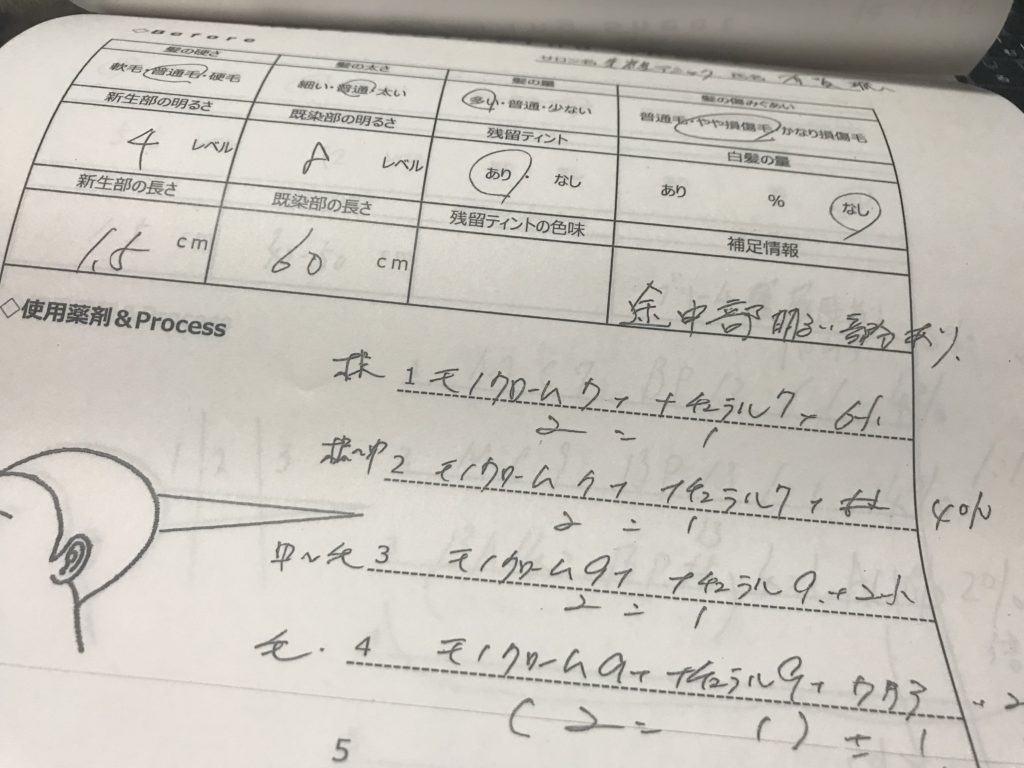 ◇Before
髪の硬さ 髪の太さ 髪の量 髪の傷みぐあい
軟毛・普通毛・硬毛 細い・普通・太い 多い・普通・少ない 普通毛・やや損傷毛・かなり損傷毛
新生部の明るさ 既染部の明るさ 残留ティント 白髪の量
4 レベル 8 レベル あり・なし あり % なし
新生部の長さ 既染部の長さ 残留ティントの色味 補足情報
1.5 cm 60 cm 途中部明るい部分あり、
◇使用薬剤&Process
根 1 モノクローム7+ナチュラル7+6%
2 = 1
根〜中 2 モノクローム7+ナチュラル7+ 4%
2 = 1
中〜毛 3 モノクローム9+ナチュラル9+2%
2 = 1
毛. 4 モノクローム9+ナチュラル9+クリア +2
(2 = 1) = 1
5